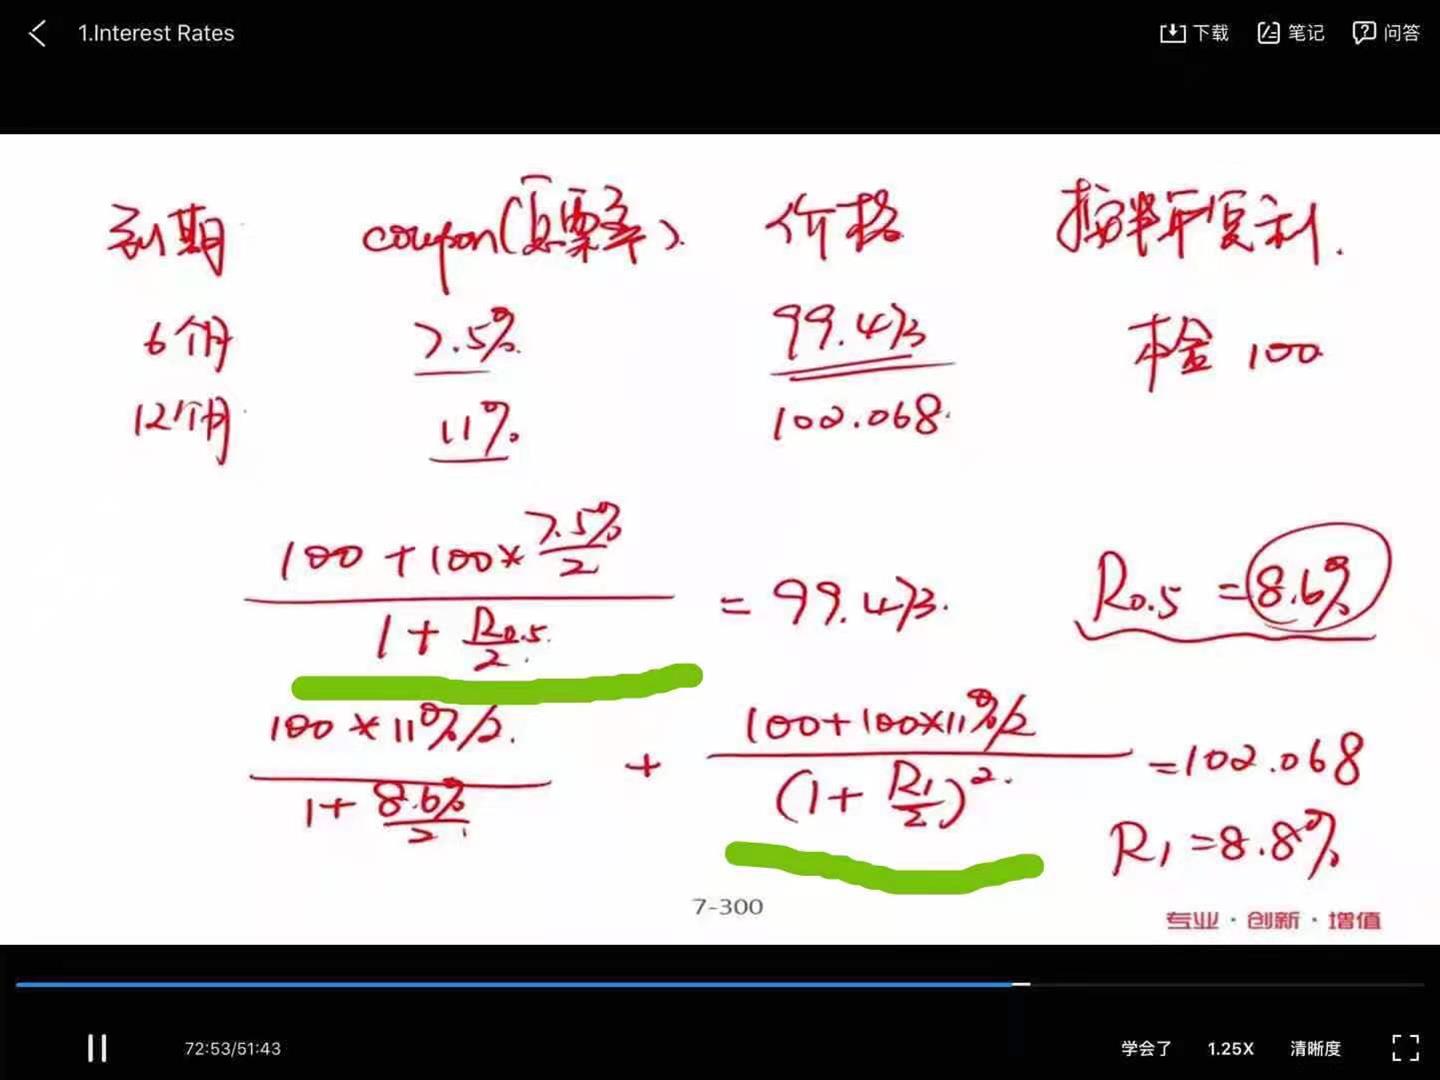 1.Interest Rates 下载 笔记 问答
到期 coupon(息票率). 价格 按半年复利.
6个月 7.5% 99.473 本金 100
12个月 11% 102.068.
100+100*7.5%/2
1+R0.5/2 = 99.473. R0.5 =8.6%
100*11%/2. + 100+100×11%/2 =102.068
1+8.6%/2 (1+R1/2)2. R1=8.8%
7-300
专业·创新·增值
72:53/51:43 学会了 1.25X 清晰度